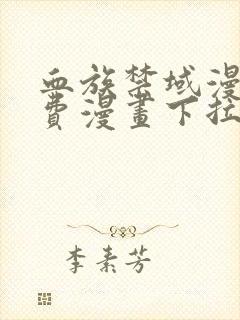 血族禁域漫
費漫畫下拉
李素芳